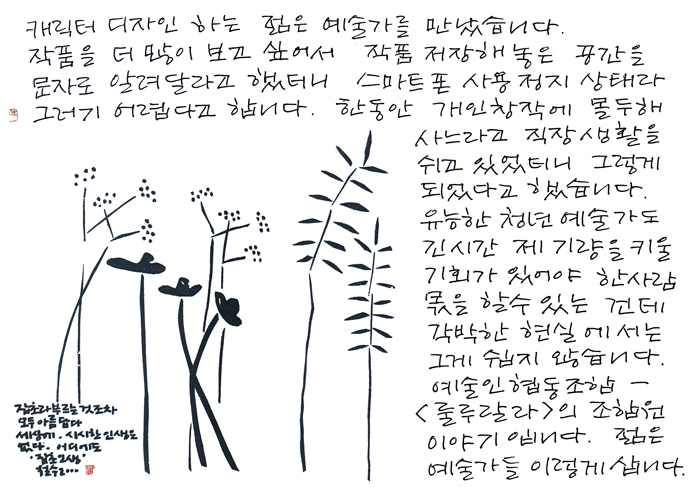 캐릭터 디자인 하는 젊은 예술가를 만났습니다.
작품을 더 많이 보고 싶어서 작품 저장해 놓은 공간을
문자로 알려달라고 했더니 스마트폰 사용정지 상태라
그러기 어렵다고 합니다. 한동안 개인창작에 몰두해
사느라고 직장생활을
쉬고 있었더니 그렇게
되었다고 했습니다.
유능한 청년 예술가도
긴시간 제 기량을 키울
기회가 있어야 한사람
몫을 할수 있는 건데
각박한 현실에서는
그게 쉽지 않습니다.
예술인협동조합 -
<룰루랄라>의 조합원
이야기 입니다. 젊은
예술가들 이렇게 삽니다.
잡초라 부르는 것조차
모두 아름답다
세상에, 시시한 인생은
없다. 어디에도
'잡초 인생'
철수2...